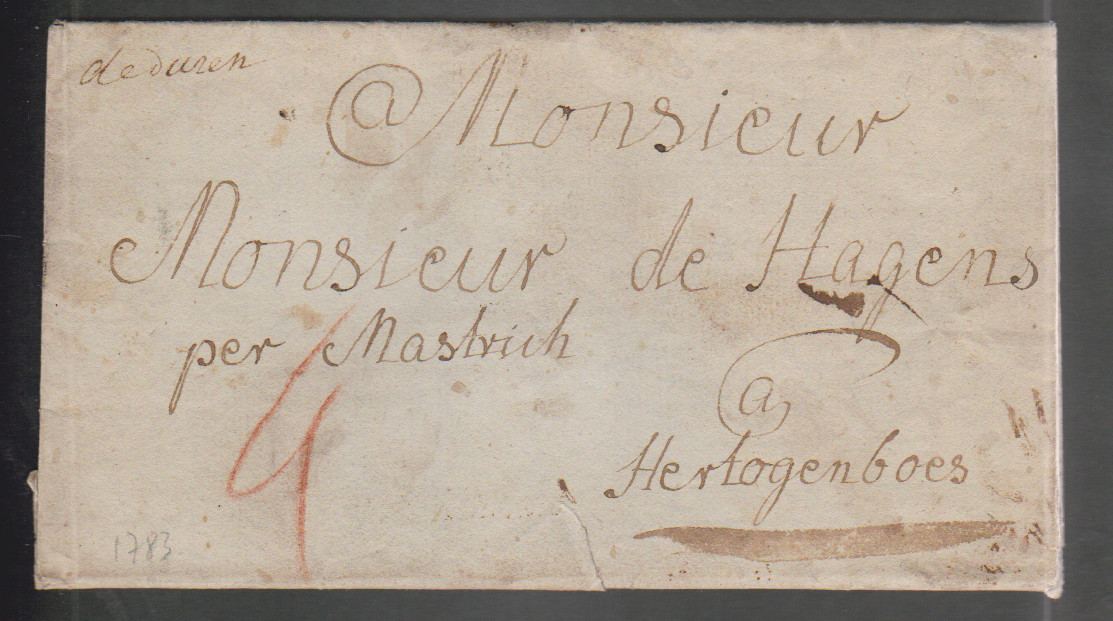 de duren
@ Monsieur
Monsieur de Hagens
per Mastrich
a
Hertogenboes
4
1783